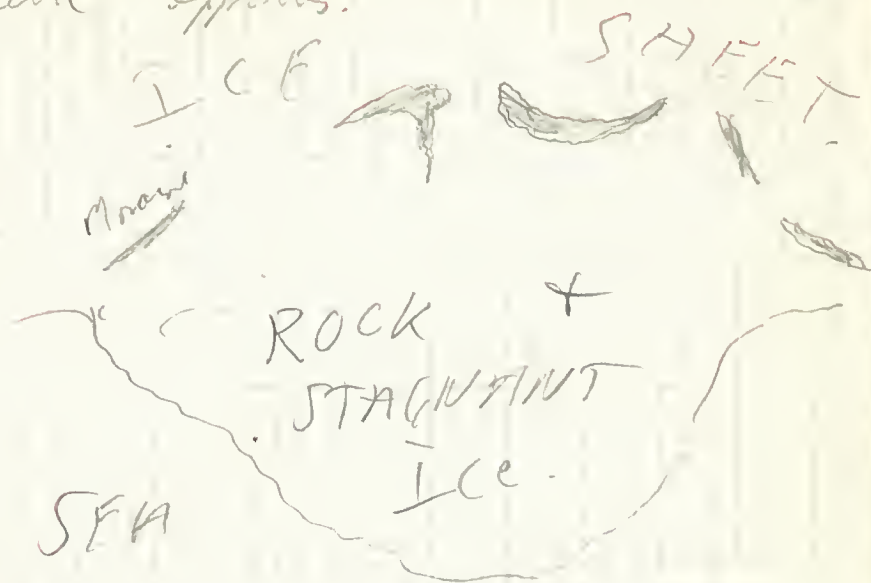 appears.
ICE SHEET.
Moraine
ROCK +
STAGNANT
Ice.
SEA